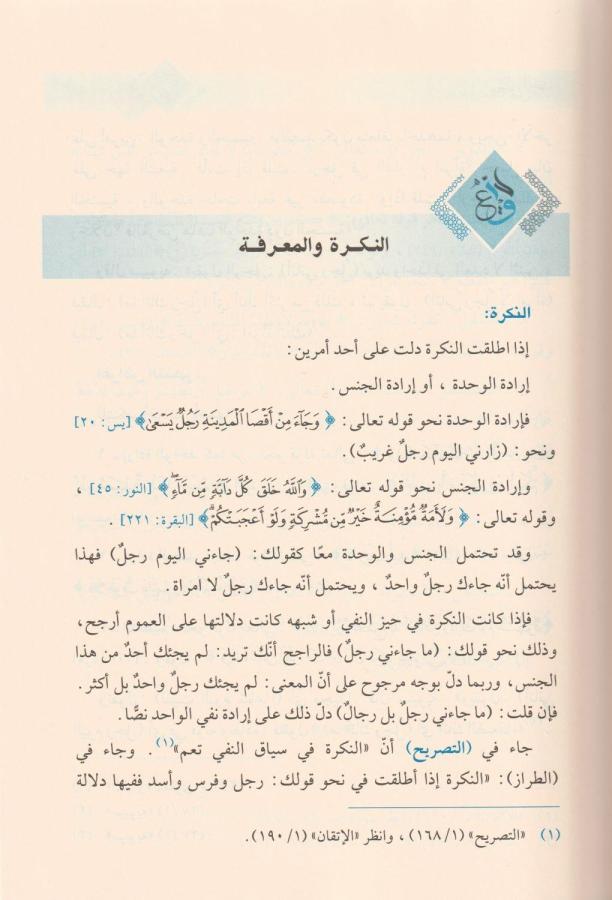 النكرة والمعرفة
النكرة:
إذا اطلقت النكرة دلت على أحد أمرين:
إرادة الوحدة ، أو إرادة الجنس.
فإرادة الوحدة نحو قوله تعالى: ﴿ وَجَآءَ مِنْ أَقْصَا ٱلْمَدِينَةِ رَجُلٌ يَسْعَىٰ﴾ [يس: ٢٠]
ونحو: (زارني اليوم رجلٌ غريبٌ).
وإرادة الجنس نحو قوله تعالى: ﴿ وَٱللَّهُ خَلَقَ كُلَّ دَآبَّةٍ مِّن مَّآءٍ﴾ [النور: ٤٥] ،
وقوله تعالى: ﴿ وَلَأَمَةٌ مُّؤْمِنَةٌ خَيْرٌ مِّن مُّشْرِكَةٍ وَلَوْ أَعْجَبَتْكُمْ﴾ [البقرة: ٢٢١] .
وقد تحتمل الجنس والوحدة معًا كقولك: (جاءني اليوم رجلٌ) فهذا
يحتمل أنّه جاءك رجلٌ واحدٌ ، ويحتمل أنّه جاءك رجلٌ لا امراة.
فإذا كانت النكرة في حيز النفي أو شبهه كانت دلالتها على العموم أرجح،
وذلك نحو قولك: (ما جاءني رجلٌ) فالراجح أنّك تريد: لم يجئك أحدٌ من هذا
الجنس، وربما دلّ بوجه مرجوح على أنّ المعنى: لم يجئك رجلٌ واحدٌ بل أكثر.
فإن قلت: (ما جاءني رجلٌ بل رجالٌ) دلّ ذلك على إرادة نفي الواحد نصًّا.
جاء في (التصريح) أنّ «النكرة في سياق النفي تعم»(١). وجاء في
(الطراز): «النكرة إذا أطلقت في نحو قولك: رجل وفرس وأسد ففيها دلالة
(١) «التصريح» (١/١٦٨) ، وانظر «الإتقان» (١/١٩٠).